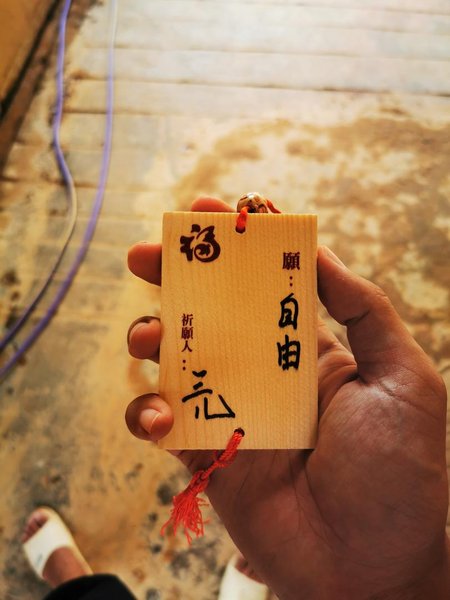 福
願：自由
祈願人：元